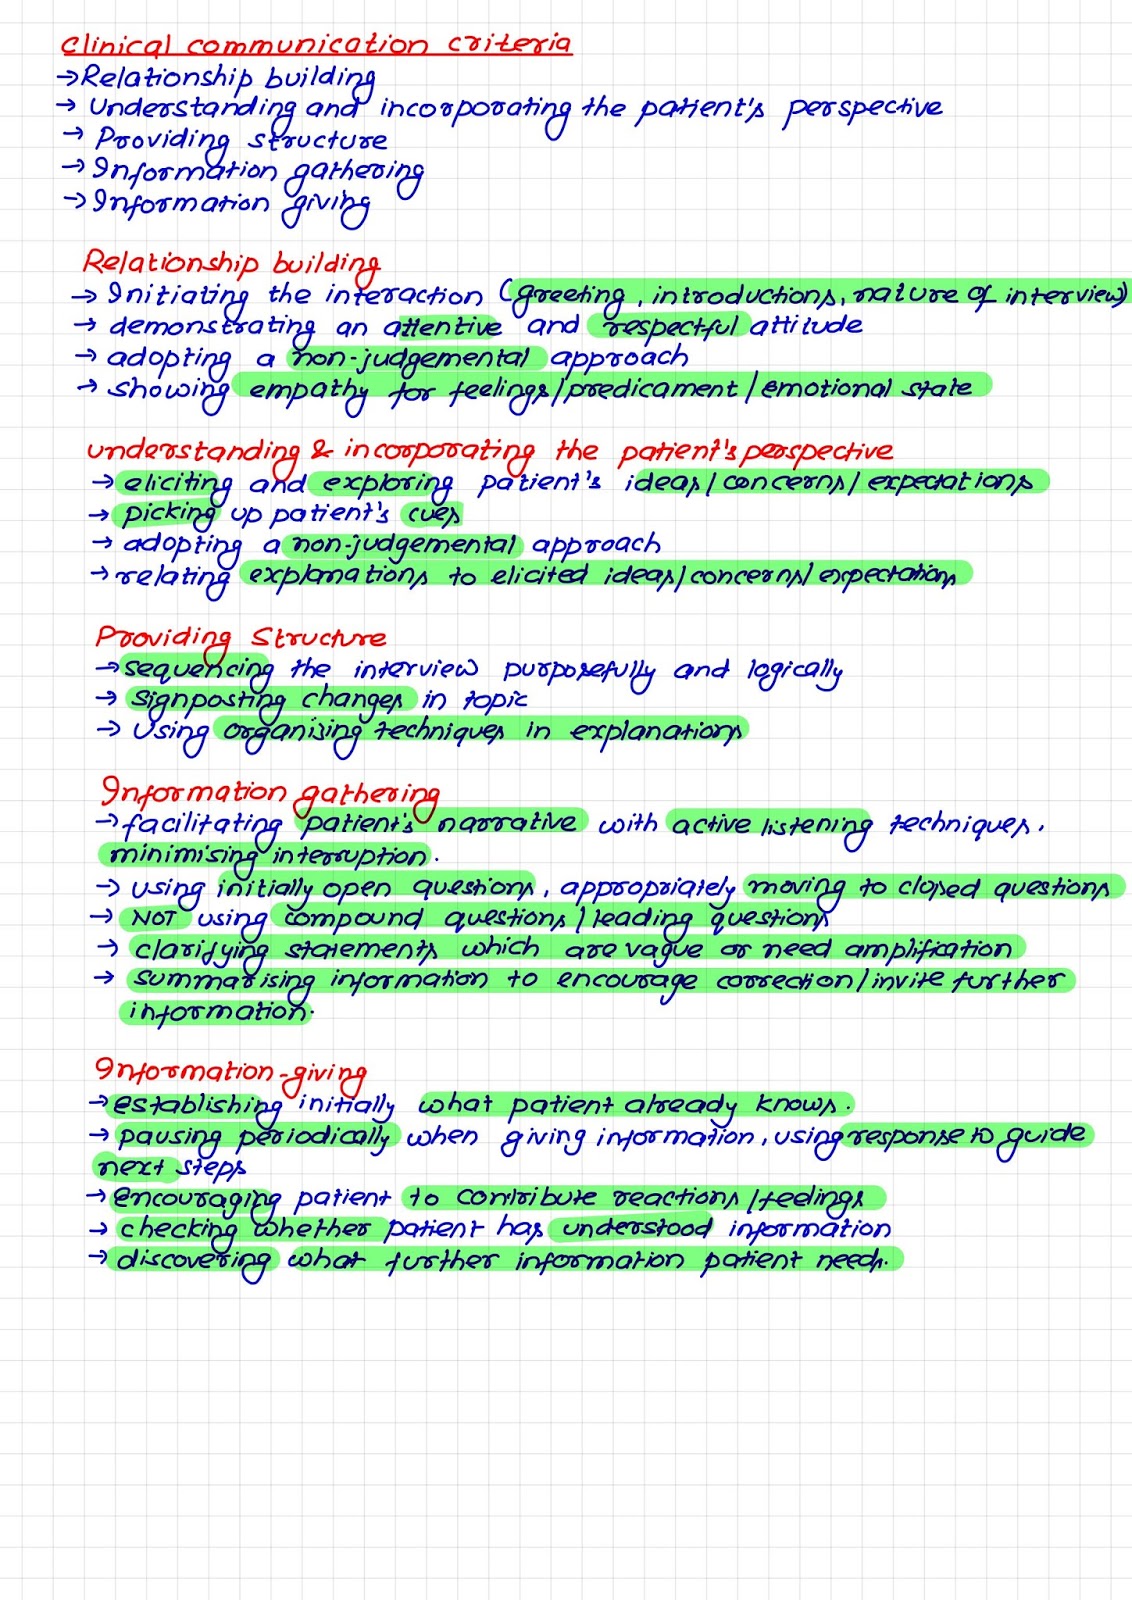 Clinical communication criteria
→ Relationship building
→ Understanding and incorporating the patient's perspective
→ Providing structure
→ Information gathering
→ Information giving
Relationship building
→ Initiating the interaction (greeting, introductions, nature of interview)
→ demonstrating an attentive and respectful attitude
→ adopting a non-judgemental approach
→ showing empathy for feelings/predicament/emotional state
understanding & incorporating the patient's perspective
→ eliciting and exploring patient's ideas/concerns/expectations
→ picking up patient's cues
→ adopting a non-judgemental approach
→ relating explanations to elicited ideas/concerns/expectations
Providing Structure
→ sequencing the interview purposefully and logically
→ signposting changes in topic
→ Using organising techniques in explanations
Information gathering
→ facilitating patient's narrative with active listening techniques,
minimising interruption.
→ using initially open questions, appropriately moving to closed questions
→ NOT using compound questions/leading questions
→ clarifying statements which are vague or need amplification
→ summarising information to encourage correction/invite further
information.
Information-giving
→ establishing initially what patient already knows.
→ pausing periodically when giving information, using response to guide
next steps
→ encouraging patient to contribute reactions/feelings
→ checking whether patient has understood information
→ discovering what further information patient needs.